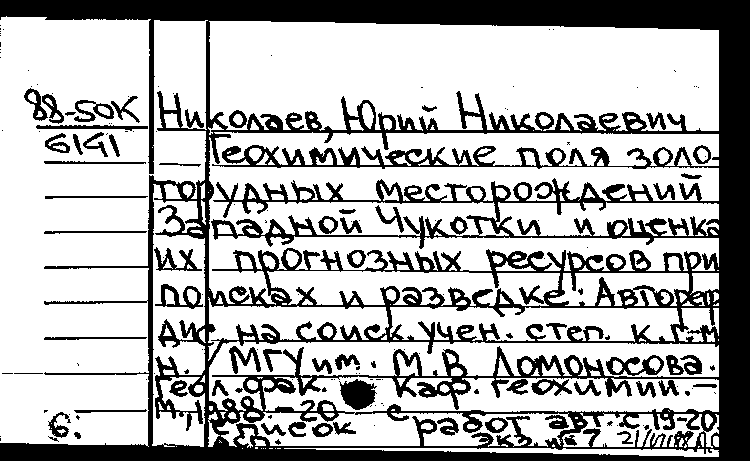 88-50К Николаев, Юрий Николаевич
6141 Геохимические поля золо-
торудных месторождений
Западной Чукотки и оценка
их прогнозных ресурсов при
поисках и разведке: Автореф
дис на соиск. учен. степ. к.г-м
н. / МГУ им. М.В Ломоносова.
Геол. фак. Каф. геохимии. –
М., 1988. – 20 с
6. Список работ авт. с. 19-20
экз. № 7